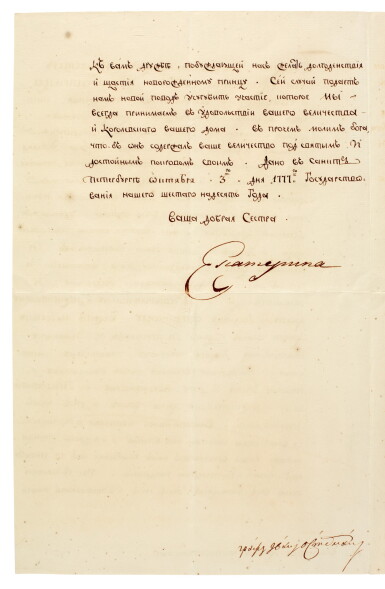 къ вамъ дружбѣ, побуждающей насъ желать долгоденствія
и щастія новорожденному принцу. Сей случай подаетъ
намъ новой поводъ усугубить участіе, которое мы
всегда принимаемъ въ удовольствіи вашего величества
и королевскаго вашего дома. въ протчемъ молимъ бога,
что бъ онъ содержалъ ваше величество под святымъ и
достойнымъ покровомъ своимъ. Дано въ санктъ
петербургѣ октября 3го дня 1777го Государствованія
ванія нашего шестаго надесять Года.
Ваша добрая Сестра.
Екатерина
графъ Иванъ Остерманъ